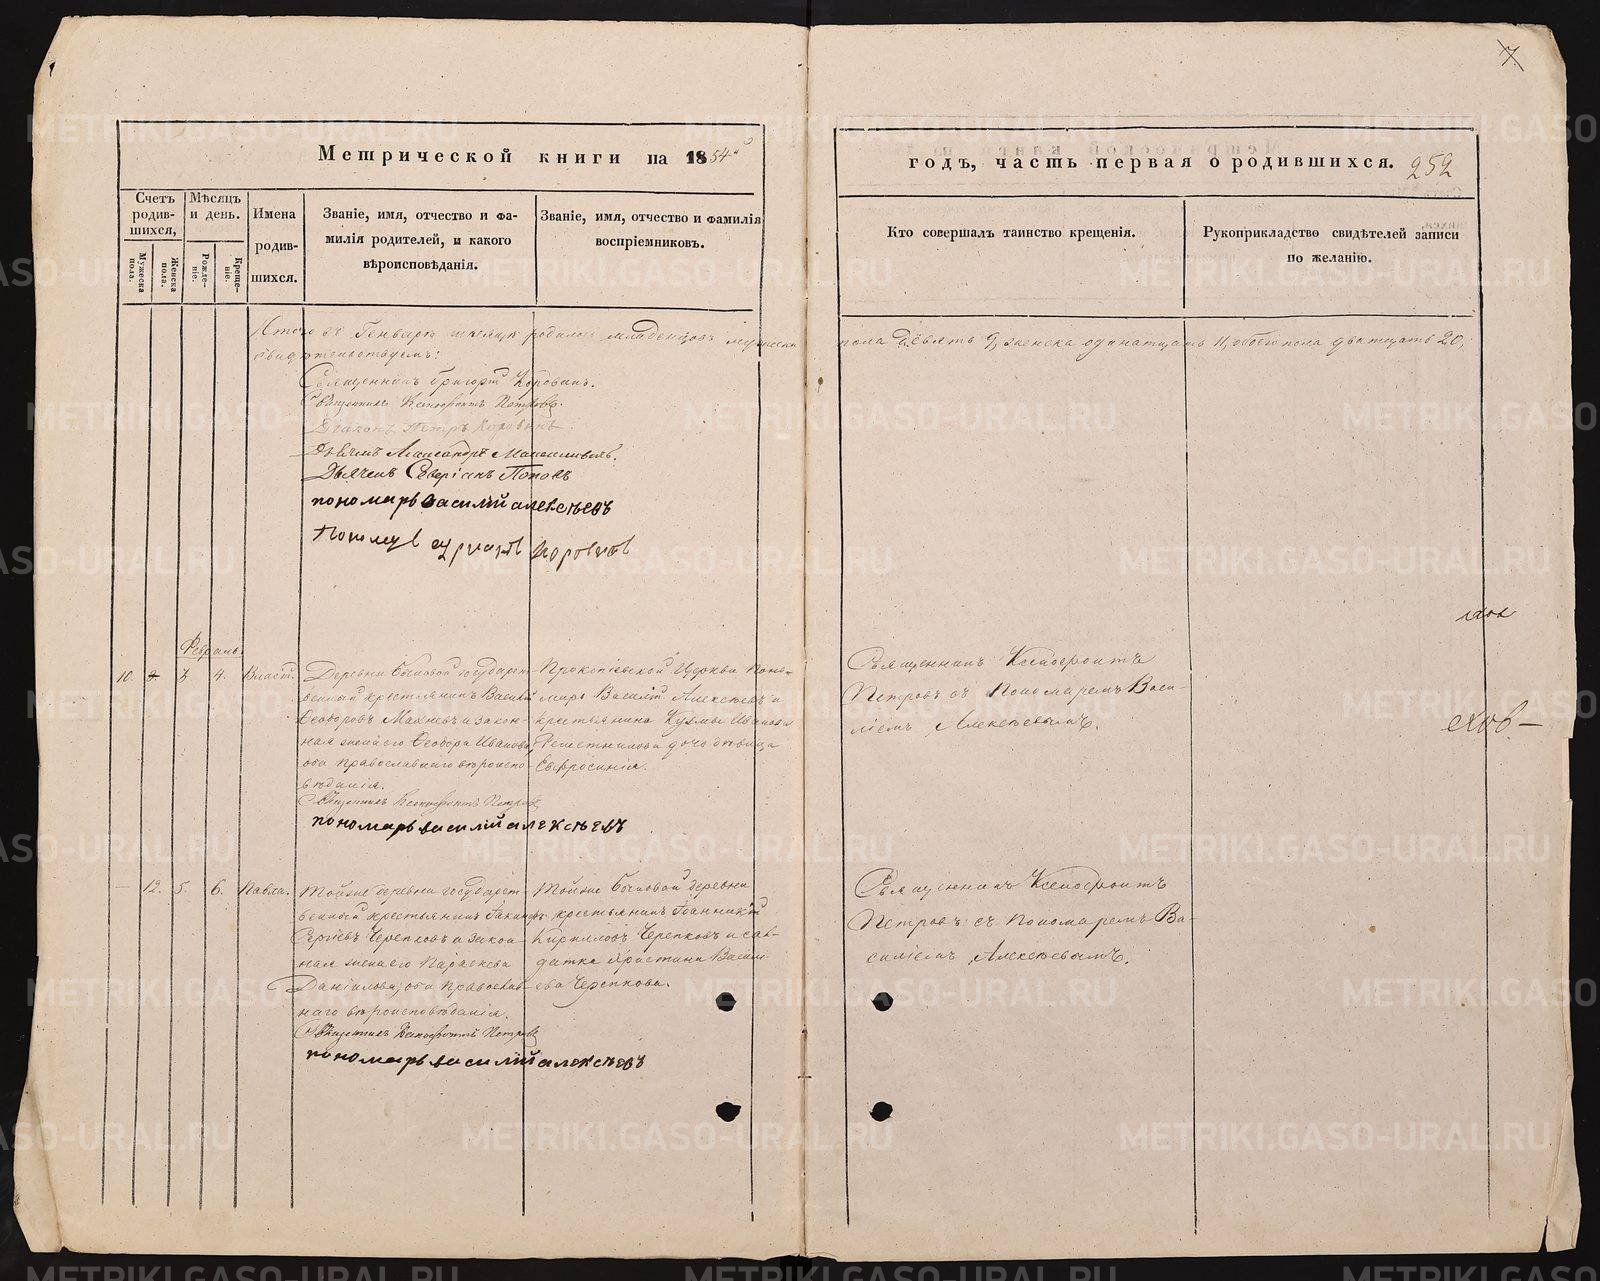 7
Метрической книги на 1854й
годъ, часть первая о родившихся. 252
Счетъ родив-шихся,
Мѣсяцъ и день.
Имена родив-шихся.
Званіе, имя, отчество и фа-
милія родителей, и какого
вѣроисповѣданія.
Званіе, имя, отчество и фамилія
воспріемниковъ.
Кто совершалъ таинство крещенія.
Рукоприкладство свидѣтелей записи
по желанію.
Мужеска пола.
Женска пола.
Рожде-ніе.
Креще-ніе.
Итого въ Генварѣ мѣсяцѣ родилось младенцовъ мужеска
пола девять 9, женска одинатцать 11, обоего пола дватцать 20,
свидѣтельствуемъ:
Священникъ Григорій Коровинъ.
Священникъ Ксенофонтъ Петровъ.
Діаконъ Петръ Коровинъ.
Дьячекъ Александръ
Дьячекъ Северіанъ Поповъ
пономарь василій алексѣевъ
Февраль.
10. 3 4. Власій.
Деревни Быковой государст-
венный крестьянинъ Василій
Ѳеодоровъ и закон-
ная жена его Ѳеодора Иванова,
оба православнаго вѣроиспо-
вѣданія.
Священникъ Ксенофонтъ Петровъ
пономарь василій алексѣевъ
Прокопіевской Церкви Поно-
марь Василій Алексѣевъ и
крестьянина Кузмы Иванова
Решетникова дочь дѣвица
Евфросинія.
Священникъ Ксенофонтъ
Петровъ съ Пономаремъ Васи-
ліемъ Алексѣевымъ.
— 12. 5. 6. Павла.
Тойже деревни государст-
венный крестьянинъ Іакинфъ
Сергіевъ Черепковъ и закон-
ная жена его Параскева
Даніилова, оба православ-
наго вѣроисповѣданія.
Священникъ Ксенофонтъ Петровъ
пономарь василій алексѣевъ
Тойже Быковой деревни
крестьянинъ Іоанникій
Кирилловъ Черепковъ и сол-
датка Христина Васильева
Черепкова.
Священникъ Ксенофонтъ
Петровъ съ Пономаремъ Ва-
силіемъ Алексѣевымъ.
METRIKI.GASO-URAL.RU